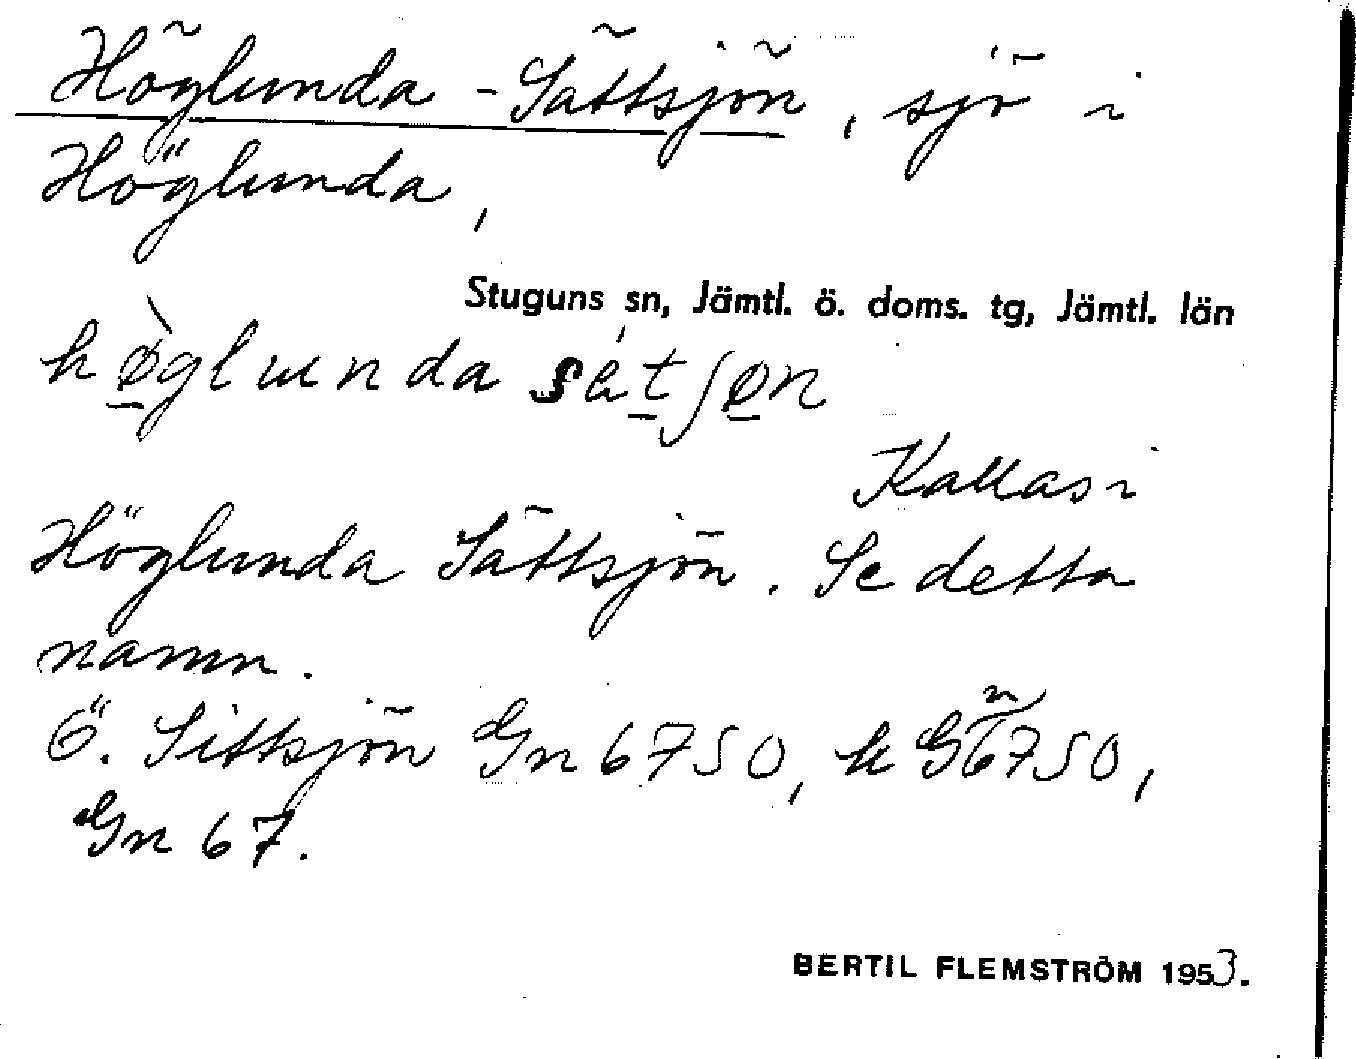 Höglunda-Sättsjön, sjö i
Höglunda,
Stuguns sn, Jämtl. ö. doms. tg, Jämtl. län
Kallas i
Höglunda Sättsjön. Se detta
namn.
Ö. Sittsjön Gn 6750, k Gn 6750,
Gn 67.
BERTIL FLEMSTRÖM 1953.